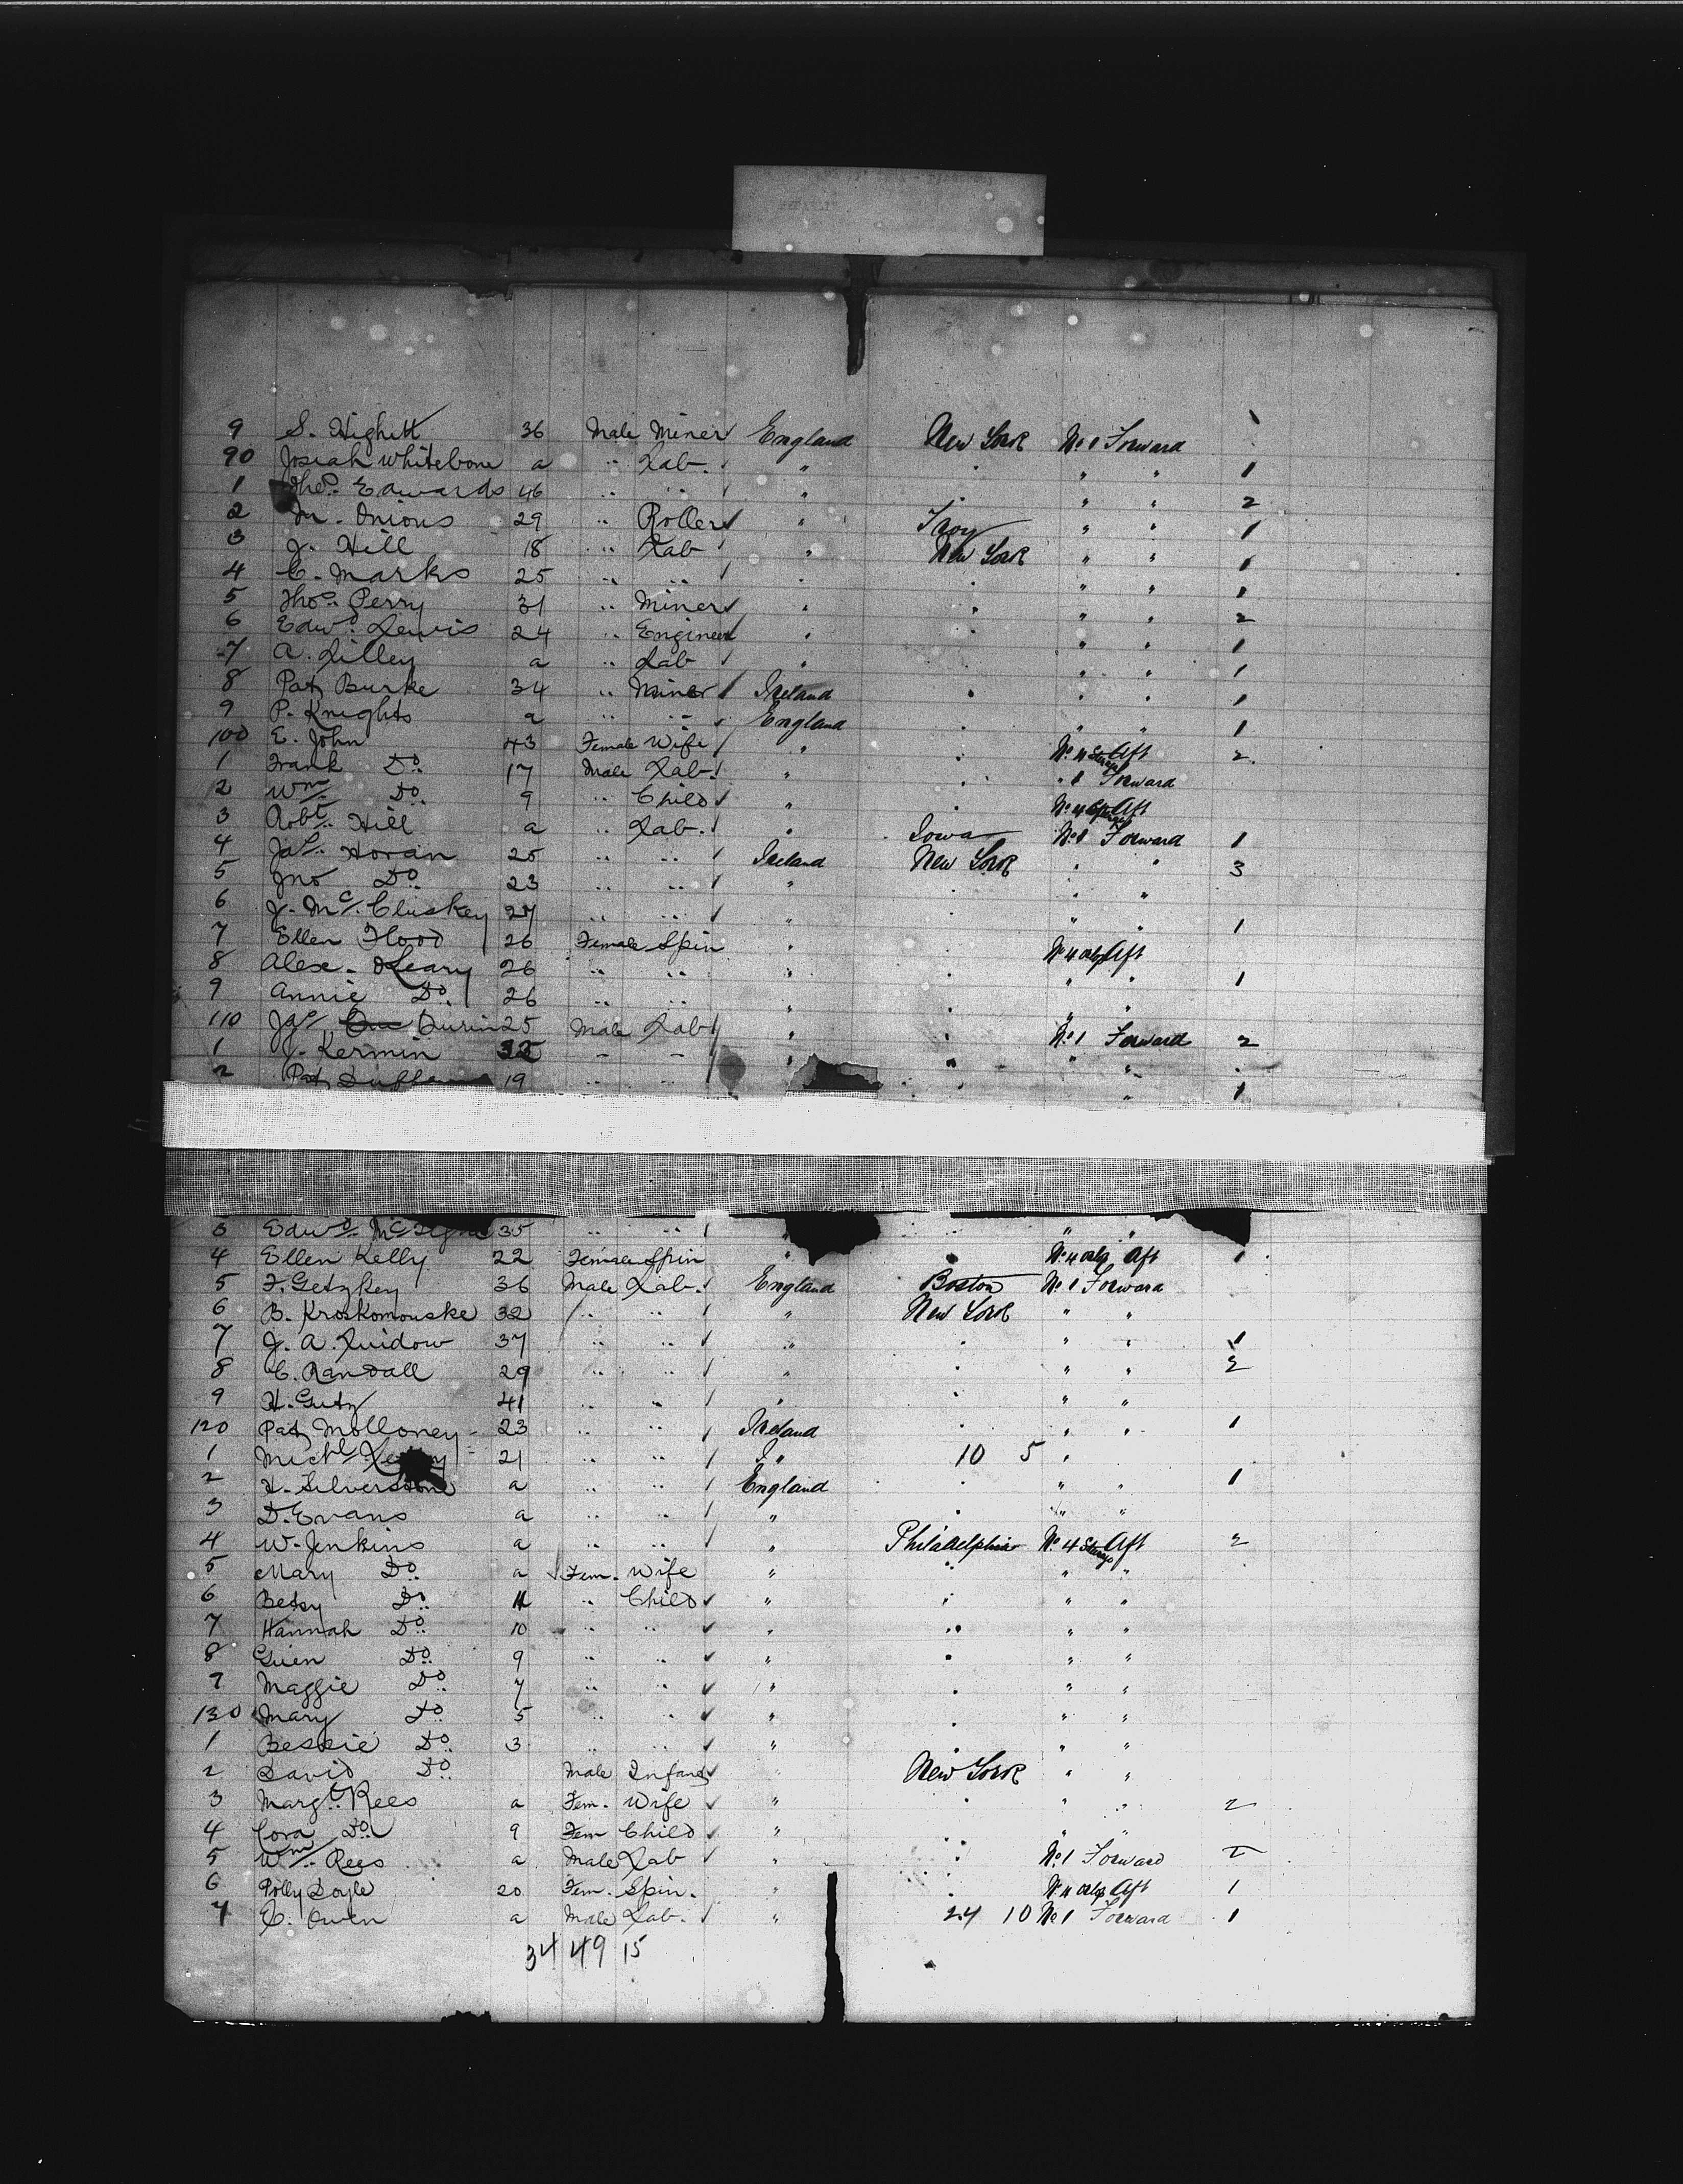 9 S. Highitt 36 Male Miner England New York No. 1 Forward
90 Josiah Whitebone a " Lab. " " " " 1
1 Thos. Edwards 46 " " " " " " 2
2 Onions 29 " Roller " Troy " " 1
3 J. Hill 18 " Lab " New York " " 1
4 C. Marks 25 " " " " " " 1
5 Thos. Perry 31 " Miner " " " " 2
6 Edwd. Lewis 24 " Engineer " " " " 1
7 A. Lilley a " Lab " " " " 1
8 Pat Burke 34 " Miner Ireland " " " 1
9 P. Knights a " " England " " " 1
100 E. John 43 Female Wife " " No. 4 Aft 2
1 Frank Do. 17 Male Lab. " " " 1 Forward
2 Wm. Do. 9 " Child " " No. 4 Aft
3 Robt. Hill a " Lab. " Iowa No. 1 Forward 1
4 Jas. Horan 25 " " Ireland New York " " 3
5 Jno Do. 23 " " " " " "
6 J. Mc. Cluskey 27 " " " " " " 1
7 Ellen Flood 26 Female Spin " " No. 4 Aft
8 Alex. O'Leary 26 " " " " " " 1
9 Annie Do. 26 " " " " " "
110 Jas. Durin 25 Male Lab " " No. 1 Forward 2
1 J. Kermin " " " " " "
2 Pat 19 " " " " 1
3 Edwd. 35 " " " "
4 Ellen Kelly 22 Female Spin " " No. 4 Aft 1
5 F. Getzkey 36 Male Lab. England Boston No. 1 Forward
6 B. Kroskomouske 32 " " " New York " "
7 J. A. Luidow 37 " " " " " " 1
8 C. Randall 29 " " " " " " 2
9 H. Gutz 41 " " " " " "
120 Pat Molloney 23 " " Ireland " " " 1
1 Michl. 21 " " I " 10 5 "
2 H. Silverstone a " " England " " " 1
3 D. Evans a " " " " " "
4 W. Jenkins a " " " Philadelphia No. 4 Aft 2
5 Mary Do. a Fem. Wife " " " "
6 Betsy Do. 11 " Child " " " "
7 Hannah Do. 10 " " " " " "
8 Guen Do. 9 " " " " " "
9 Maggie Do. 7 " " " " " "
130 Mary Do. 5 " " " " " "
1 Bessie Do. 3 " " " " " "
2 David Do. Male Infant " New York " "
3 Margt. Rees a Fem. Wife " " " " 2
4 Cora Do. 9 Fem Child " " " "
5 Wm. Rees a Male Lab " " No. 1 Forward
6 Polly Doyle 20 Fem. Spin. " " No. 4 Aft 1
7 E. Owen a Male Lab. " 24 10 No 1 Forward 1
34 49 15